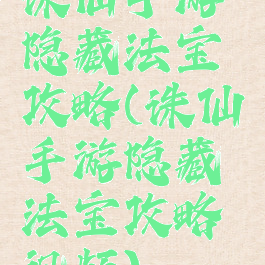 诛仙手游
隐藏法宝
攻略(诛仙
手游隐藏
法宝攻略
视频)